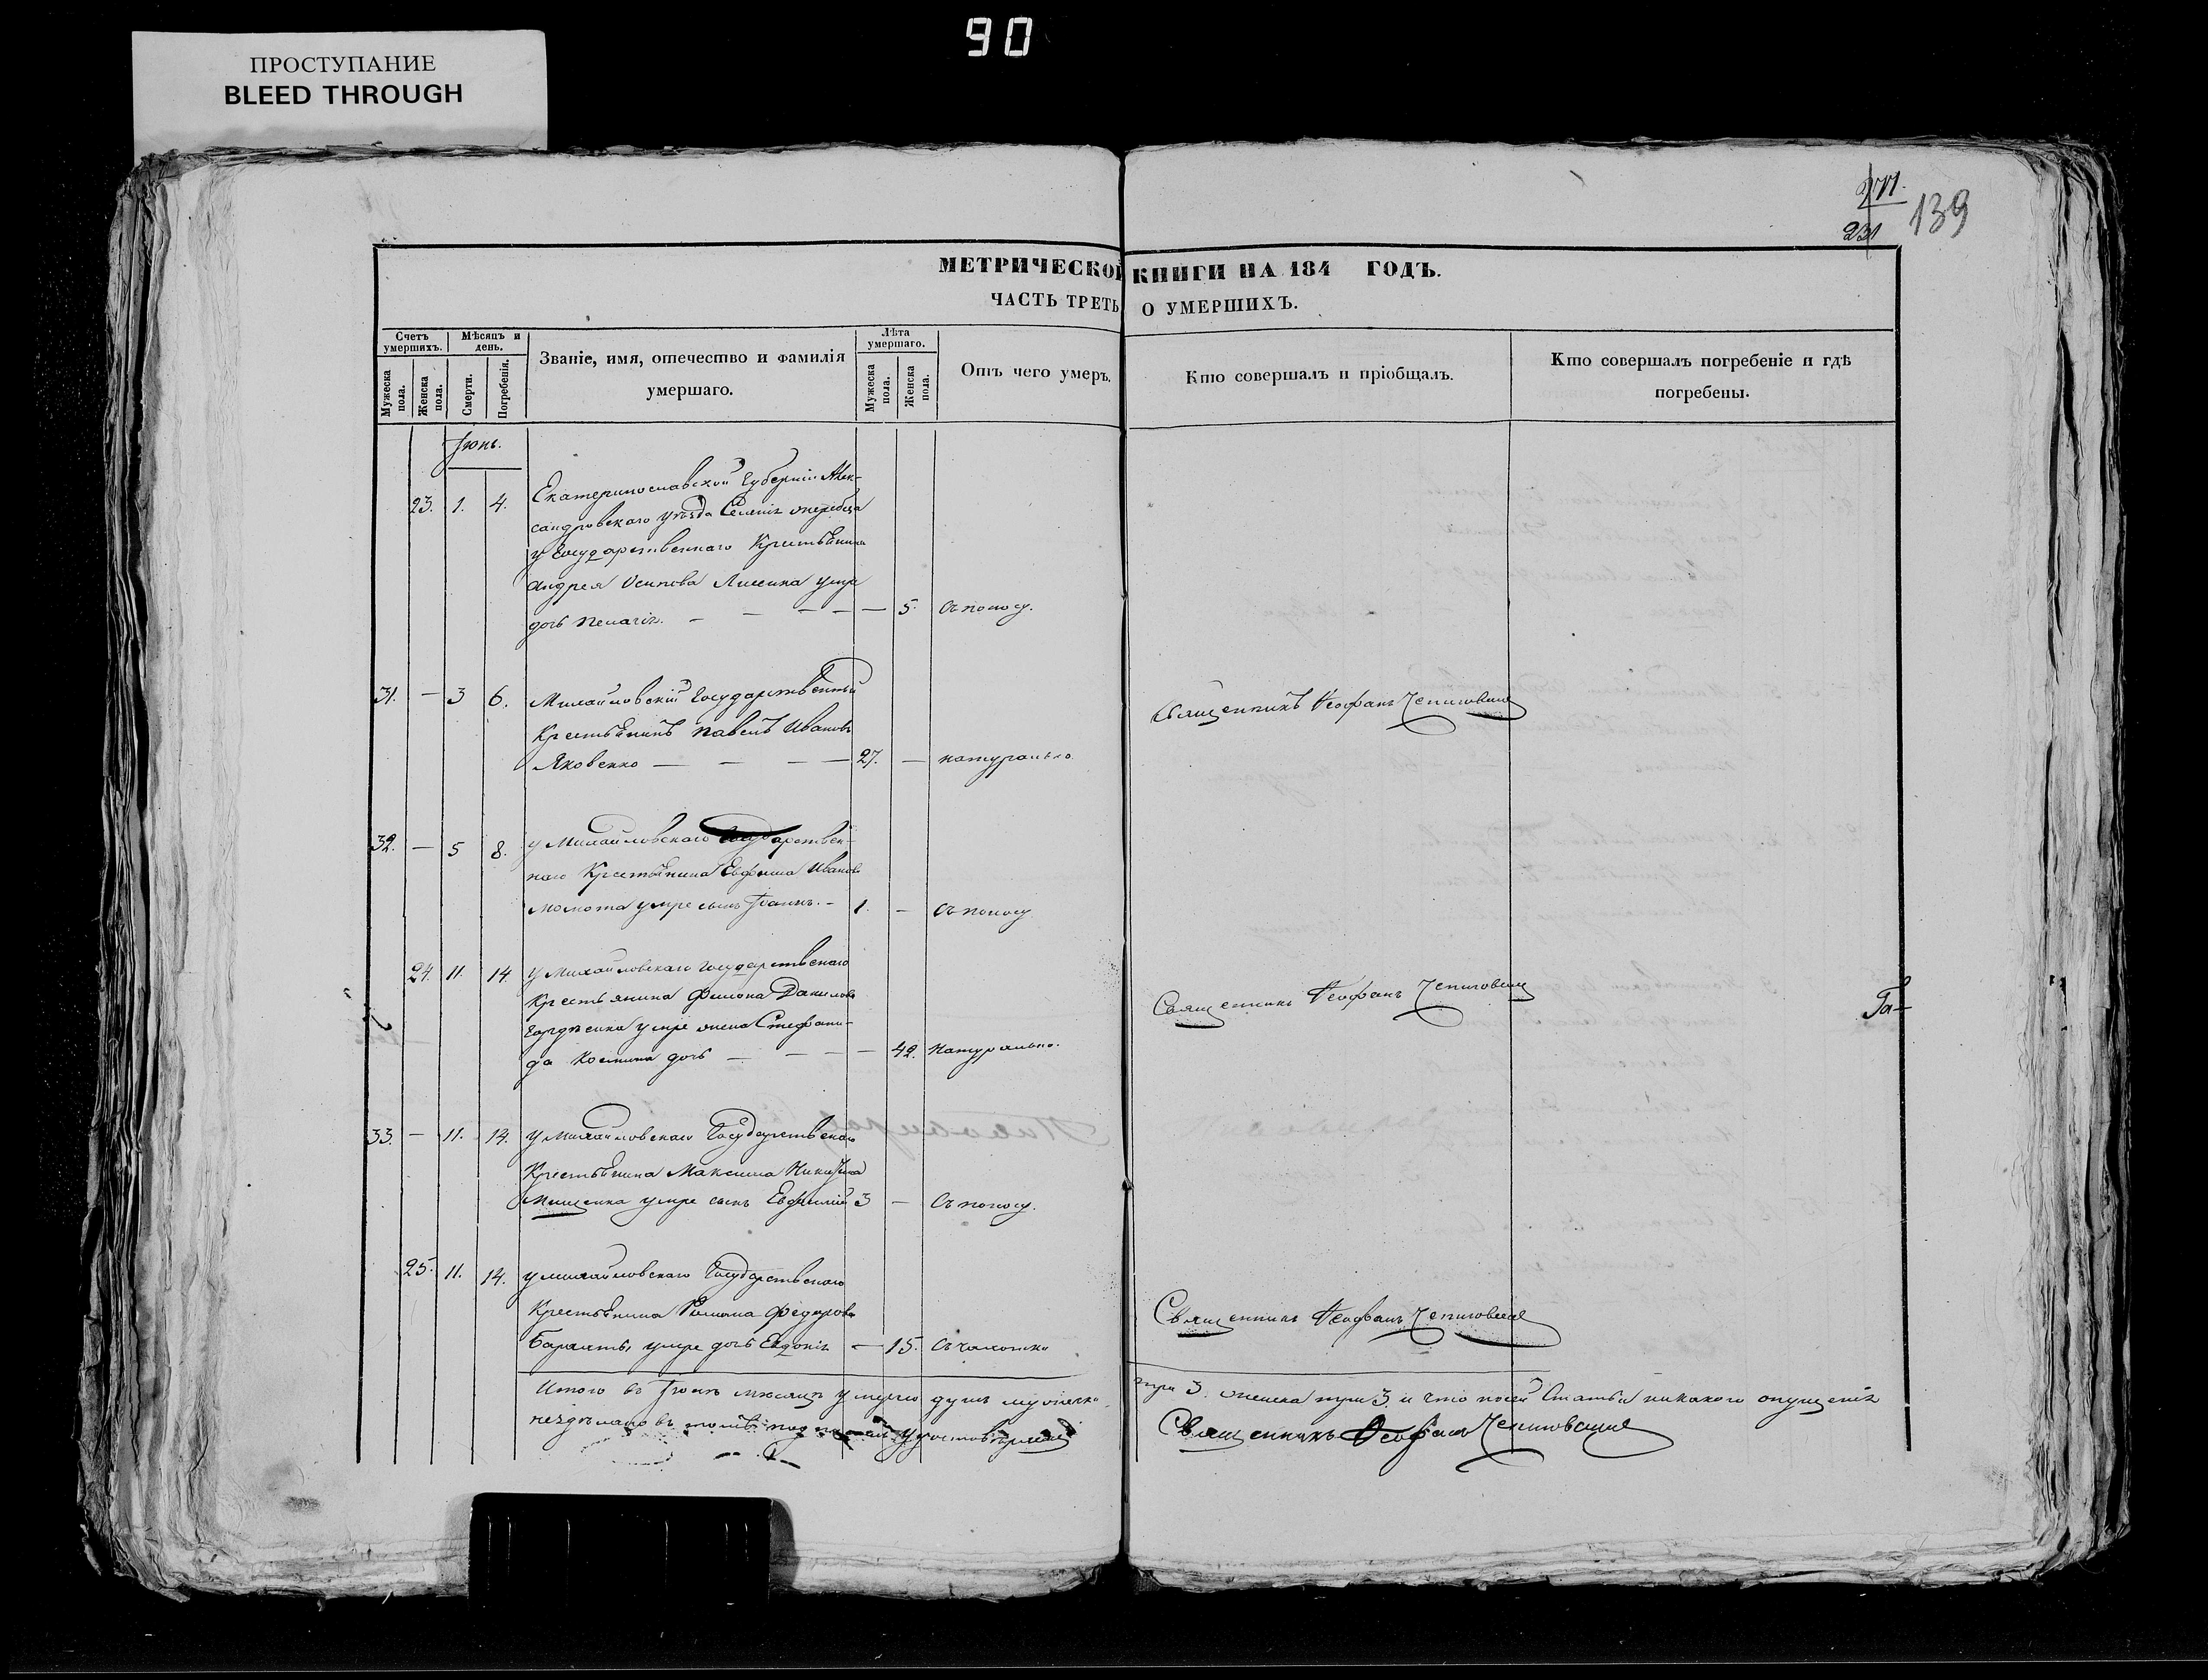 90
ПРОСТУПАНИЕ
BLEED THROUGH
271.
231
139
МЕТРИЧЕСКОЙ КНИГИ НА 184 ГОДЪ.
ЧАСТЬ ТРЕТЬ О УМЕРШИХЪ.
Счетъ умершихъ.
Мужеска пола.
Женска пола.
Мѣсяцъ и день.
Смерти.
Погребенія.
Званіе, имя, отечество и фамилія умершаго.
Лѣта умершаго.
Мужеска пола.
Женска пола.
Отъ чего умеръ.
Кто совершалъ и пріобщалъ.
Кто совершалъ погребеніе и гдѣ погребены.
Іюнь.
23. 1. 4. Екатеринославской Губерніи Алек-
сандровскаго уѣзда Селенія
у Государственнаго Крестьянина
Андрея Осипова умре
дочь Пелагія. — — — — — 5. Съ поносу.
31. — 3 6. Михайловскій Государственный
Крестьянинъ Павелъ Ивановъ
Яковенко — — — — 27. — натурально
Священникъ Феофанъ
32. — 5 8. у Михайловскаго Государствен-
наго Крестьянина Евфима Иванова
Момота умре сынъ Іоаннъ. — 1. — Съ поносу
24. 11. 14 у Михайловскаго Государственаго
Крестьянина Филона Данилова
умре жена Стефани-
да Костина дочь — — — — 42. Натурально.
Священникъ Феофанъ
Га-
33. — 11. 14. у Михайловскаго Государственаго
Крестьянина Максима Никитина
Мищенка умре сынъ Евфимій 3 — Съ поносу.
25. 11. 14. у Михайловскаго Государственаго
Крестьянина Романа Федорова
умре дочь Евдокія — 15. Съ чахотки
Священникъ Феофанъ
Итого въ Іюнѣ мѣсяцѣ умерло душъ мужеска три 3. женска три 3. и что по сей Статьи никакого опущенія
нездѣлано въ томъ удостовѣряемъ
Священникъ Феофанъ